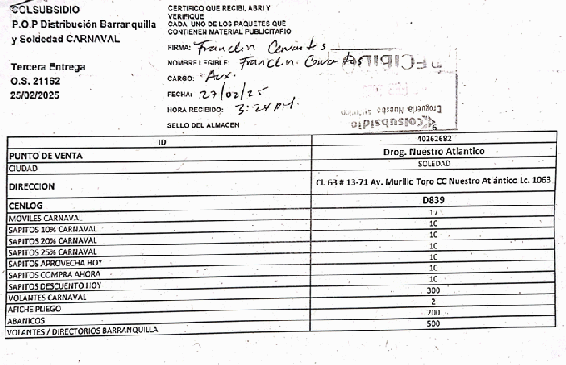 COLSUBSIDIO
P.O.P Distribución Barranquilla
y Soledad CARNAVAL
Tercera Entrega
O.S. 21162
25/02/2025
CERTIFICO QUE RECIBI, ABRI Y
VERIFIQUE
CADA UNO DE LOS PAQUETES QUE
CONTIENEN MATERIAL PUBLICITARIO
FIRMA: Franclin Cervantes
NOMBRE LEGIBLE: Franclin Cervantes
CARGO: Aux.
FECHA: 27/02/25
HORA RECIBIDO: 3:20 PM.
SELLO DEL ALMACEN
RECIBIDO
Droguería Nuestro Atlántico
Colsubsidio
ID 40262682
PUNTO DE VENTA Drog. Nuestro Atlantico
CIUDAD SOLEDAD
DIRECCION Cl. 63 # 13-71 Av. Murillo Toro CC Nuestro Atlántico Lc. 1063
CENLOG D839
MOVILES CARNAVAL
SAPITOS 10% CARNAVAL 10
SAPITOS 20% CARNAVAL 10
SAPITOS 25% CARNAVAL 10
SAPITOS APROVECHA HOY 10
SAPITOS COMPRA AHORA 10
SAPITOS DESCUENTO HOY 10
VOLANTES CARNAVAL 300
AFICHE PLIEGO 2
ABANICOS 200
VOLANTES / DIRECTORIOS BARRANQUILLA 500